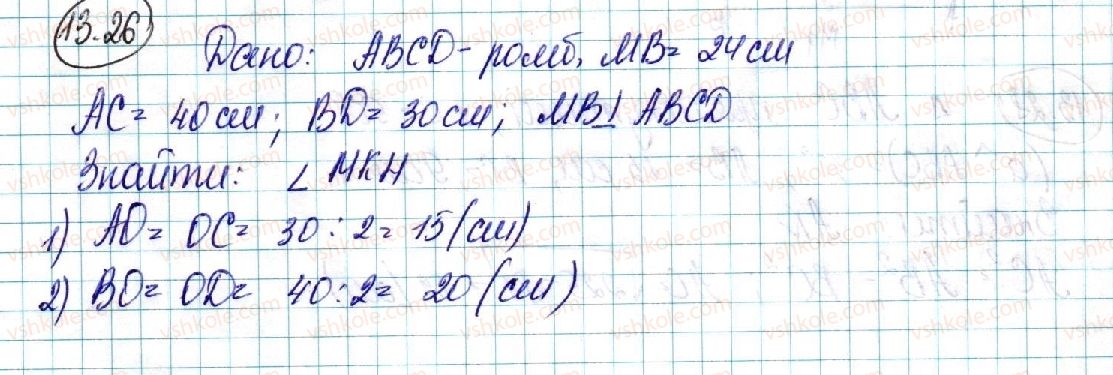 13.26
Дано: ABCD - ромб, MB = 24 см
AC = 40 см; BD = 30 см; MB ⊥ ABCD
Знайти: ∠ МКН
1) AO = OC = 30 : 2 = 15 (см)
2) BO = OD = 40 : 2 = 20 (см)
vshkole.com